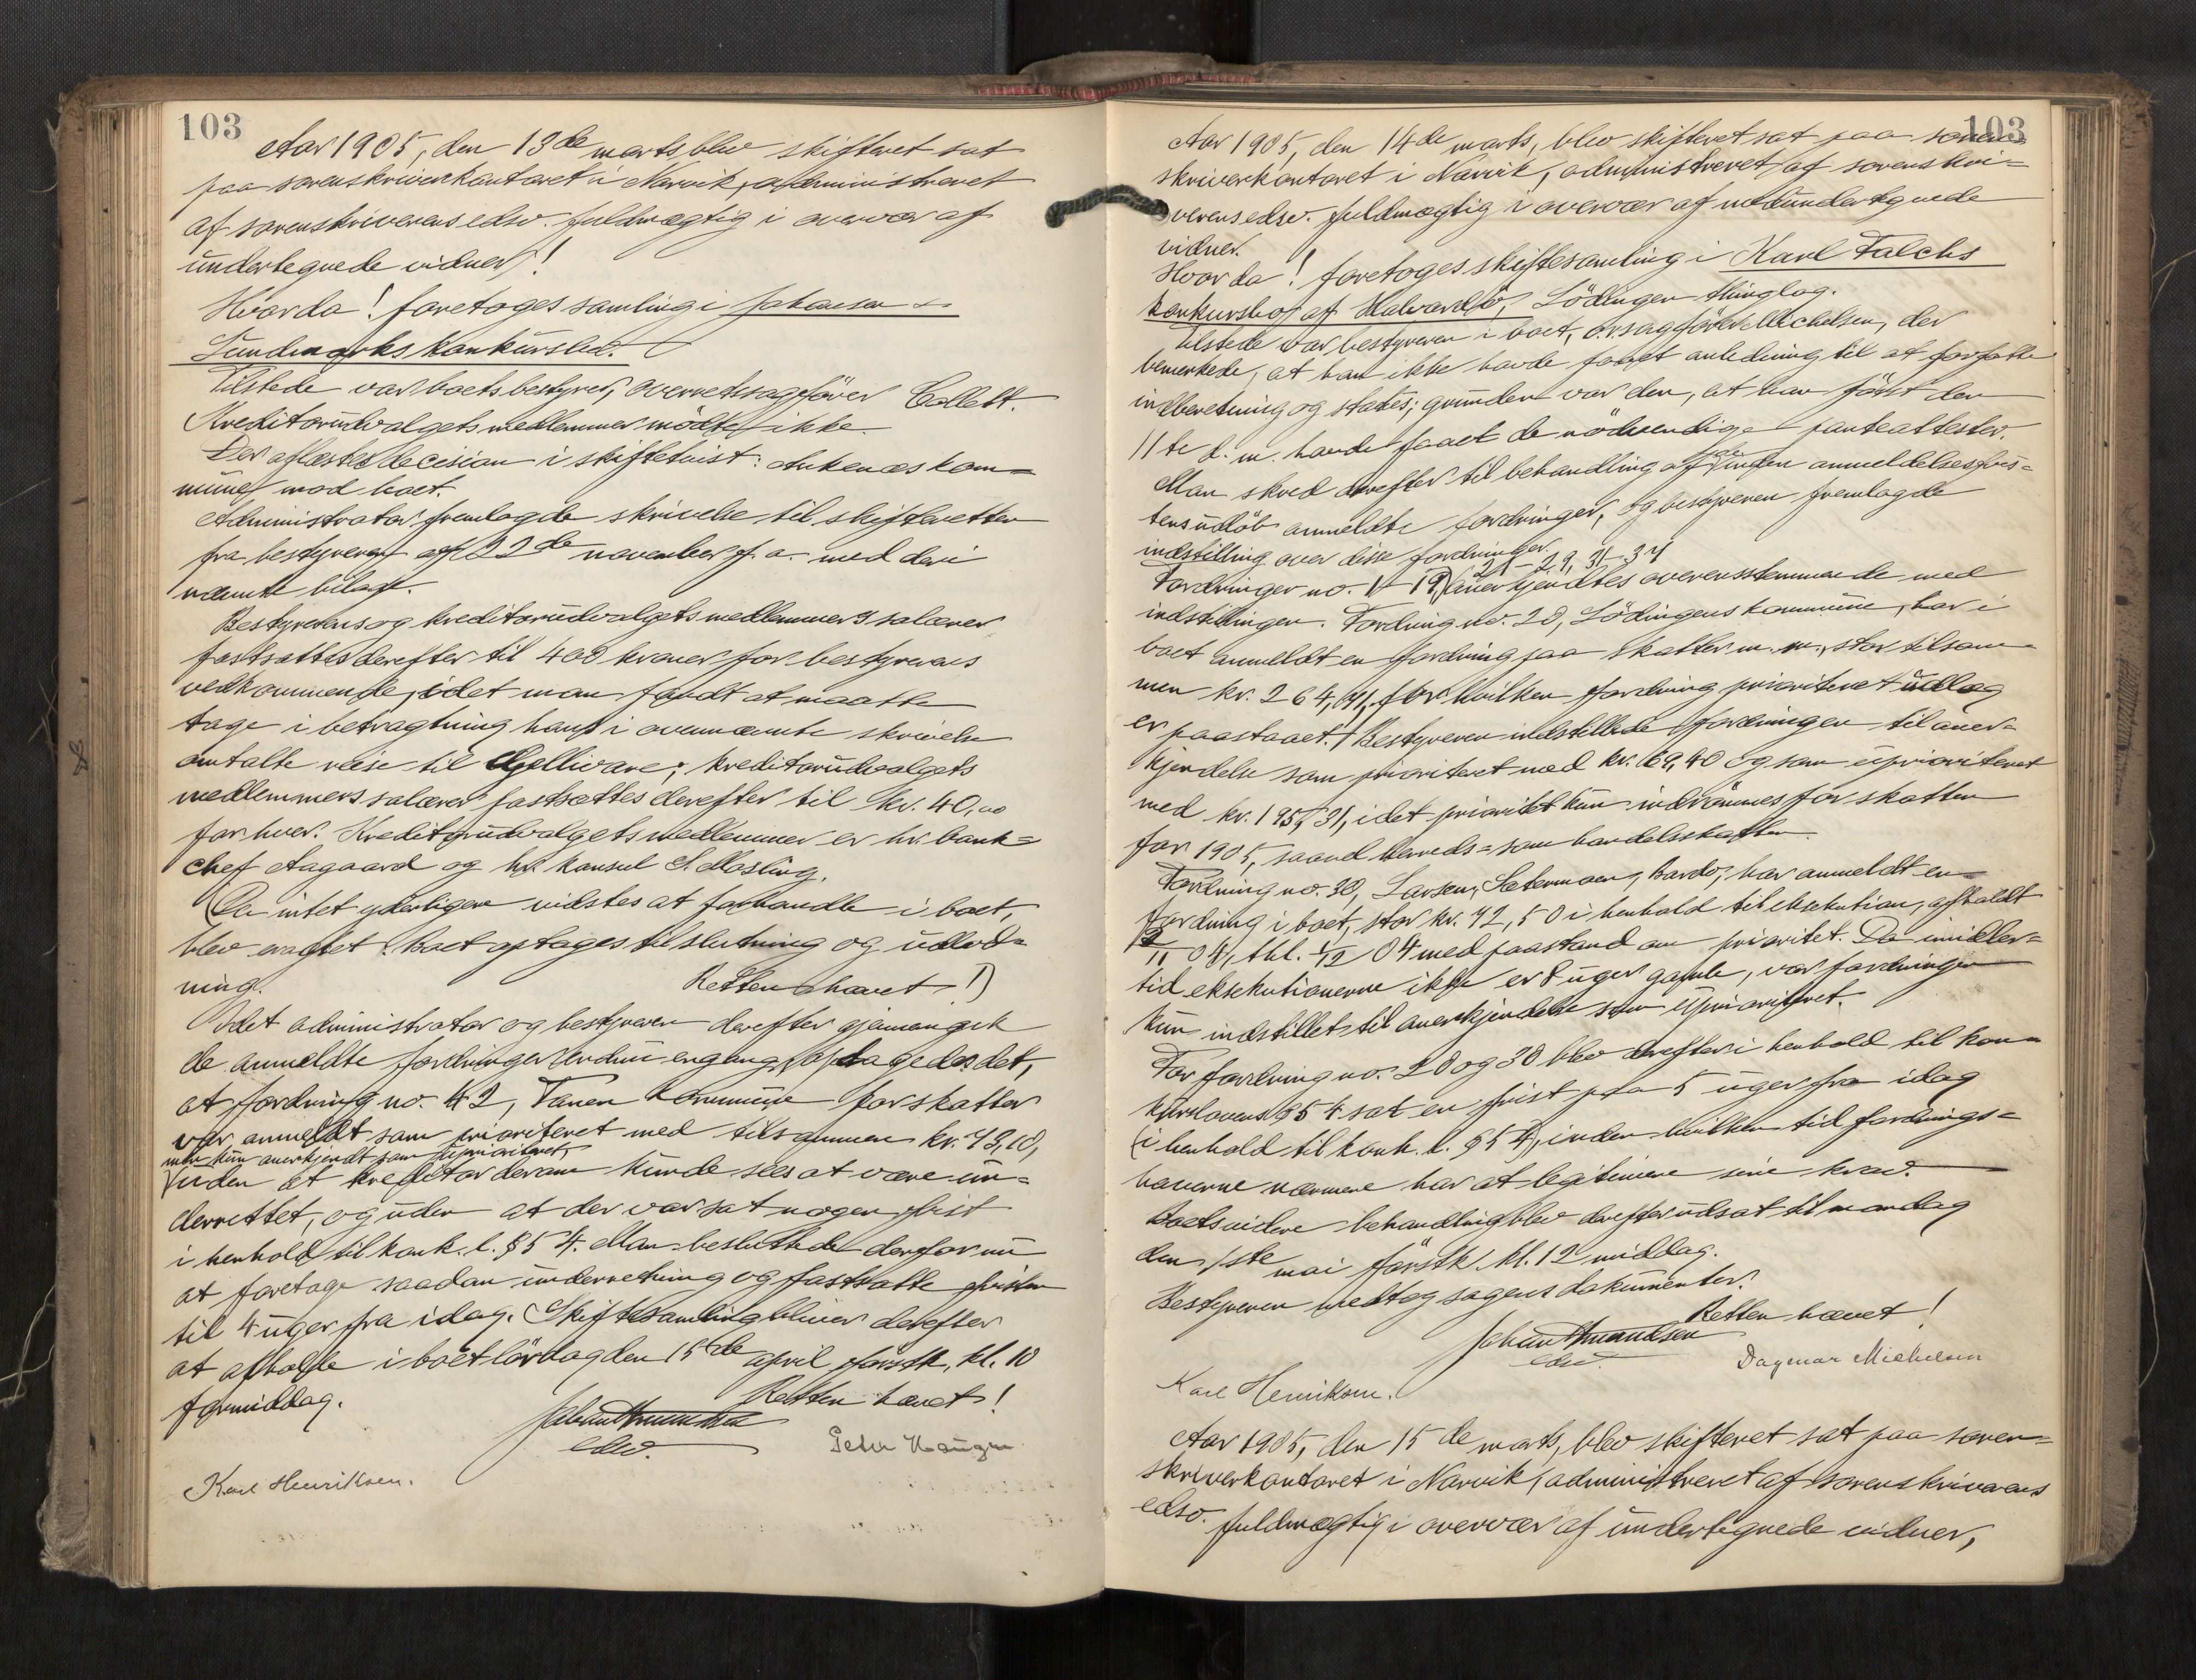 103
Aar 1905, den 13de marts blev skifteret sat
paa sorenskriverkontoret i Narvik, administreret
af sorenskriverens edsv. fuldmægtig i overvær af
undertegnede vidner!
Hvorda! foretoges samling i Johansen &
Lundmarks konkursbo.
Tilstede var boets bestyrer, overretssagfører Collett.
Kreditorudvalgets medlemmer mödte ikke.
Der aflæstes decision i skiftetvist: Ankenæs kom=
mune mod boet.
Administrator fremlagde skrivelse til skifteretten
fra bestyreren af 22de november f. a. med deri
nævnte bilage.
Bestyrerens og kreditorudvalgets medlemmers salærer
fastsattes derefter til 400 kroner for bestyrerens
vedkommende, idet man fandt at maatte
tage i betragtning hans i ovennævnte skrivelse
omtalte reise til Gellivare; kreditorudvalgets
medlemmers salærer fastsættes derefter til kr. 40,00
for hver. Kreditorudvalgets medlemmer er hr. bank=
chef Aagaard og hr. konsul S. Mosling.
(Da intet yderligere vidstes at forhandle i boet,
blev eragtet: Boet optages til slutning og udlod=
ning. Retten hævet!)
Idet administrator og bestyreren derefter gjennemgik
de anmeldte fordringer endnu engang, opdagedes det,
at fordring no. 42, Tanen kommune for skatter
var anmeldt som prioriteret med tilsammen kr. 43,10,
men kun anerkjendt som uprioriteret,
uden at kreditor derom kunde sees at være un=
derrettet, og uden at der var sat nogen frist
i henhold til konk. l. § 54. Man besluttede derfor nu
at foretage saadan underretning og fastsatte fristen
til 4 uger fra idag. Skiftesamling bliver derefter
at afholde i boet lördag den 15de april förstk. kl. 10
formiddag. Retten hævet!
Johan Amundsen
edsv.
Peter Haugen
Karl Henriksen.
103
Aar 1905, den 14de marts, blev skifteret sat paa soren=
skriverkontoret i Narvik, administreret af sorenskri=
verens edsv. fuldmægtig i overvær af medundertegnede
vidner.
Hvorda! foretoges skiftesamling i Karl Falchs
konkursbo af Halvardø, Lödingen thinglag.
Tilstede var bestyreren i boet, o.r.sagförer Michelsen, der
bemerkede, at han ikke havde faaet anledning til at forfatte
indberetning og status; grunden var den, at han först den
11te d. m. havde faaet de nödvendige panteattester.
Man skred derefter til behandling af de inden anmeldelsesfris=
tens udlöb anmeldte fordringer, og bestyreren fremlagde
indstilling over disse fordringer.
21-29, 31-34
Fordringer no. 1-19, anerkjendtes overensstemmende med
indstillingen. Fordring no. 20, Lödingens kommune, har i
boet anmeldt en fordring paa skatter m. m., stor tilsam=
men kr. 264,71, for hvilken fordring prioriteret udlæg
er paastaaet. Bestyreren indstillede fordringen til aner=
kjendelse som prioriteret med kr. 69,40 og som uprioriteret
med kr. 195,31, idet prioritet kun indrömmes for skatten
for 1905, saavel herreds= som handelsskatten.
Fordring no. 30, Larsen, Sætermoen, Bardo, har anmeldt en
fordring i boet, stor kr. 42,50 i henhold til eksekution, afholdt
2/11 04, thl. 1/12 04 med paastand om prioritet. Da imidler=
tid eksekutionerne ikke er 8 uger gamle, var fordringen
kun indstillet til anerkjendelse som uprioriteret.
For fordring no. 20 og 30 blev derefter i henhold til kon=
kurslovens § 54 sat en frist paa 5 uger fra idag
(i henhold til konk. l. § 54), inden hvilken tid fordrings=
haverne nærmere har at legitimere sine krav.
Boets videre behandling blev derefter udsat til mandag
den 1ste mai förstk. kl. 12 middag.
Bestyreren medtog sagens dokumenter.
Retten hævet!
Johan Amundsen
edsv.
Dagmar Michelsen
Karl Henriksen.
Aar 1905, den 15de marts, blev skifteret sat paa soren=
skriverkontoret i Narvik, administreret af sorenskriverens
edsv. fuldmægtig i overvær af undertegnede vidner,